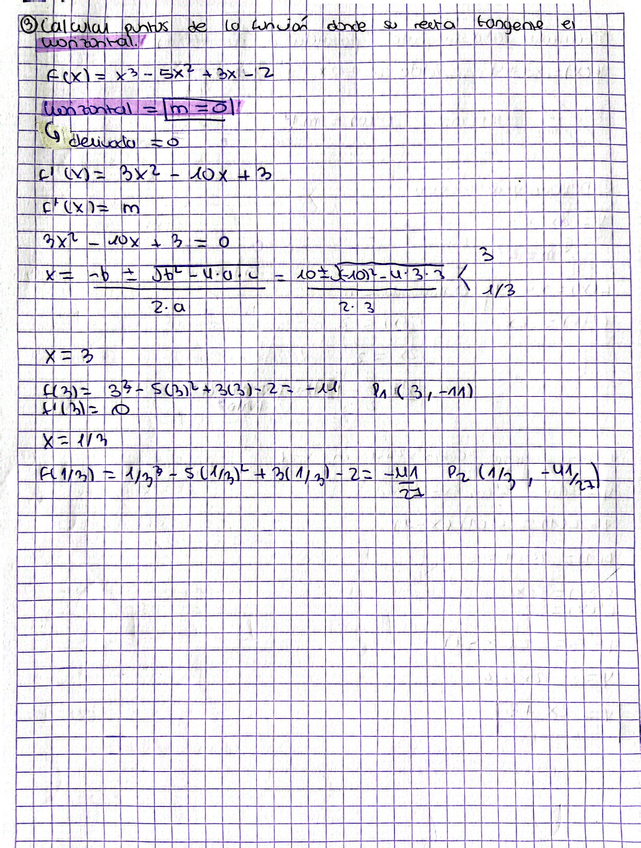 ③ Calcular puntos de la función donde su recta tangente es
horizontal.
f(x) = x³ - 5x² + 3x - 2
horizontal = m = 0
↳ derivada = 0
f'(x) = 3x² - 10x + 3
f'(x) = m
3x² - 10x + 3 = 0
x = (-b ± √(b² - 4·a·c)) / (2·a) = (10 ± √((-10)² - 4·3·3)) / (2·3) < 3, 1/3
x = 3
f(3) = 3³ - 5(3)² + 3(3) - 2 = -11 P₁ (3, -11)
f'(3) = 0
x = 1/3
f(1/3) = 1/3³ - 5(1/3)² + 3(1/3) - 2 = -41/27 P₂ (1/3, -41/27)